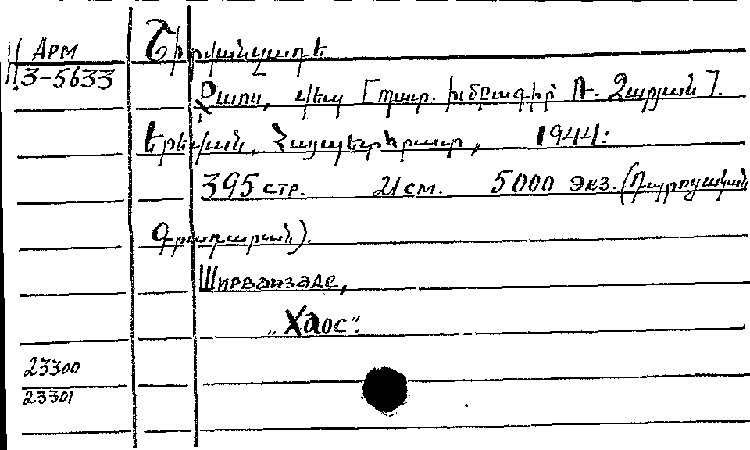 Арм
3-5633
Շիրվանզադե
Քաոս, վեպ [պատ. խմբագիր Ռ. Զարյան].
Երևան, Հայպետհրատ, 1944:
395 стр. 21 см. 5000 экз. (Դպրոցական
գրադարան).
Ширванзаде,
„Хаос".
23300
23301